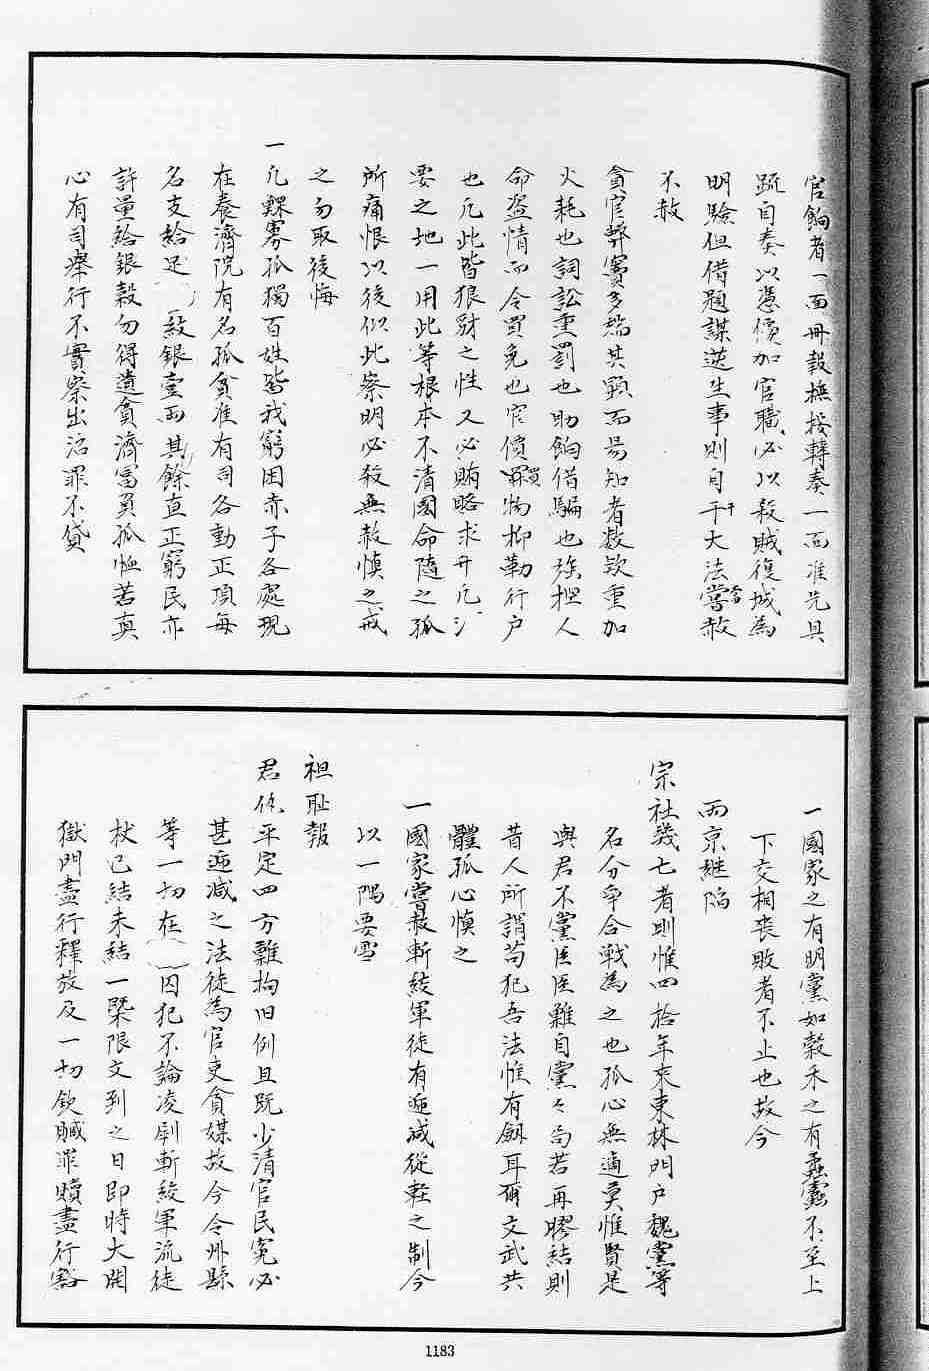 官餉者一面冊報撫按轉奏一面准先具
疏自奏以憑價加官職必以殺賊復城為
明驗但借題謀逆生事則自干大法嘗赦
不赦
貪官弊竇多端其顯而易知者數欵重加
火耗也詞訟重罰也助餉借騙也強桎人
命盗情而令買免也官價買物抑勒行户
也凡此皆狼豺之性又必賄賂求升凡
要之地一用此等根本不清國命隨之孤
所痛恨以後似此察明必殺無赦慎之戒
之勿取後悔
一凡鰥寡孤獨百姓皆我窮困赤子各處現
在養濟院有名孤貧准有司各動正項每
名支給足()紋銀壹兩其餘直正窮民亦
許量給銀穀勿得遺貧濟富負孤恤若真
心有司舉行不實察出治罪不貸
一國家之有朋黨如穀禾之有蟊靈不至上
下交相喪敗者不止也故今
兩京継陷
宗社幾七者則惟四拾年來東林門户魏黨等
名分争合戰為之也孤心無適莫惟賢是
與君不黨臣臣難自黨々尚若再膠結則
昔人所謂苟犯吾法惟有劔耳爾文武共
體孤心慎之
一國家嘗赦斬絞軍徒有逓减從軽之制今
以一隅要雪
祖耻報
君仇平定四方難拘旧例且既少清官民寃必
甚逓减之法徒為官吏貪媒故今令州縣
等一切在()囚犯不論凌剮斬絞軍流徒
杖已結未結一槩限文到之日即時大開
獄門盡行釋放及一切欽贓罪贖盡行豁
1183